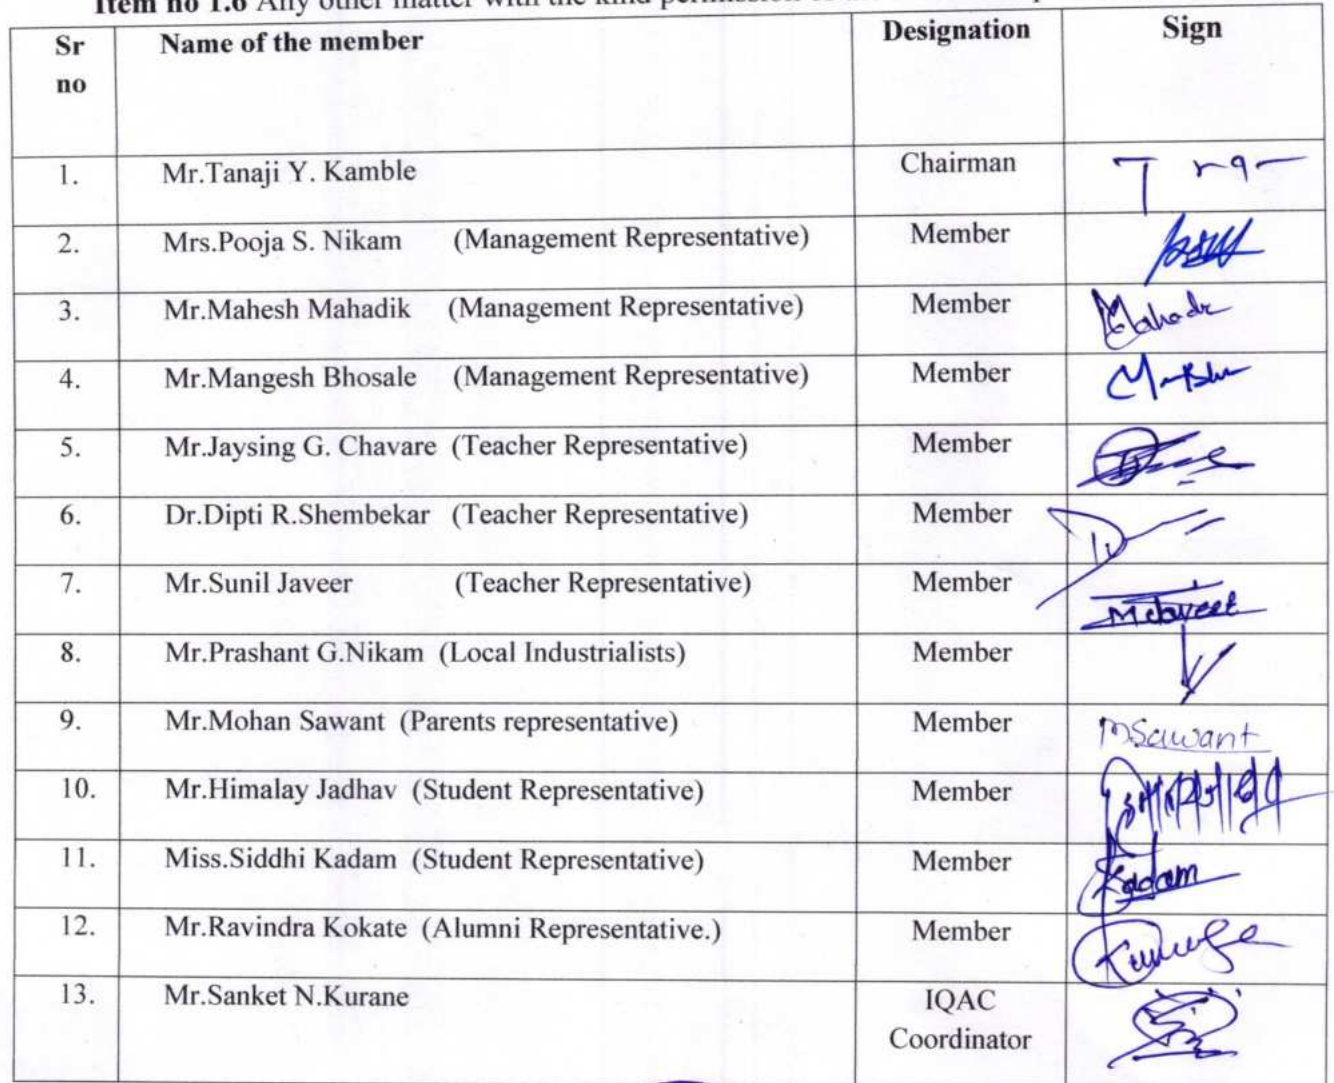 Item no 1.6 Any other matter with the kind permission
Sr no Name of the member Designation Sign
1. Mr.Tanaji Y. Kamble Chairman
2. Mrs.Pooja S. Nikam (Management Representative) Member
3. Mr.Mahesh Mahadik (Management Representative) Member Mahadik
4. Mr.Mangesh Bhosale (Management Representative) Member
5. Mr.Jaysing G. Chavare (Teacher Representative) Member
6. Dr.Dipti R.Shembekar (Teacher Representative) Member
7. Mr.Sunil Javeer (Teacher Representative) Member
8. Mr.Prashant G.Nikam (Local Industrialists) Member
9. Mr.Mohan Sawant (Parents representative) Member MSawant
10. Mr.Himalay Jadhav (Student Representative) Member
11. Miss.Siddhi Kadam (Student Representative) Member Kadam
12. Mr.Ravindra Kokate (Alumni Representative.) Member
13. Mr.Sanket N.Kurane IQAC
Coordinator